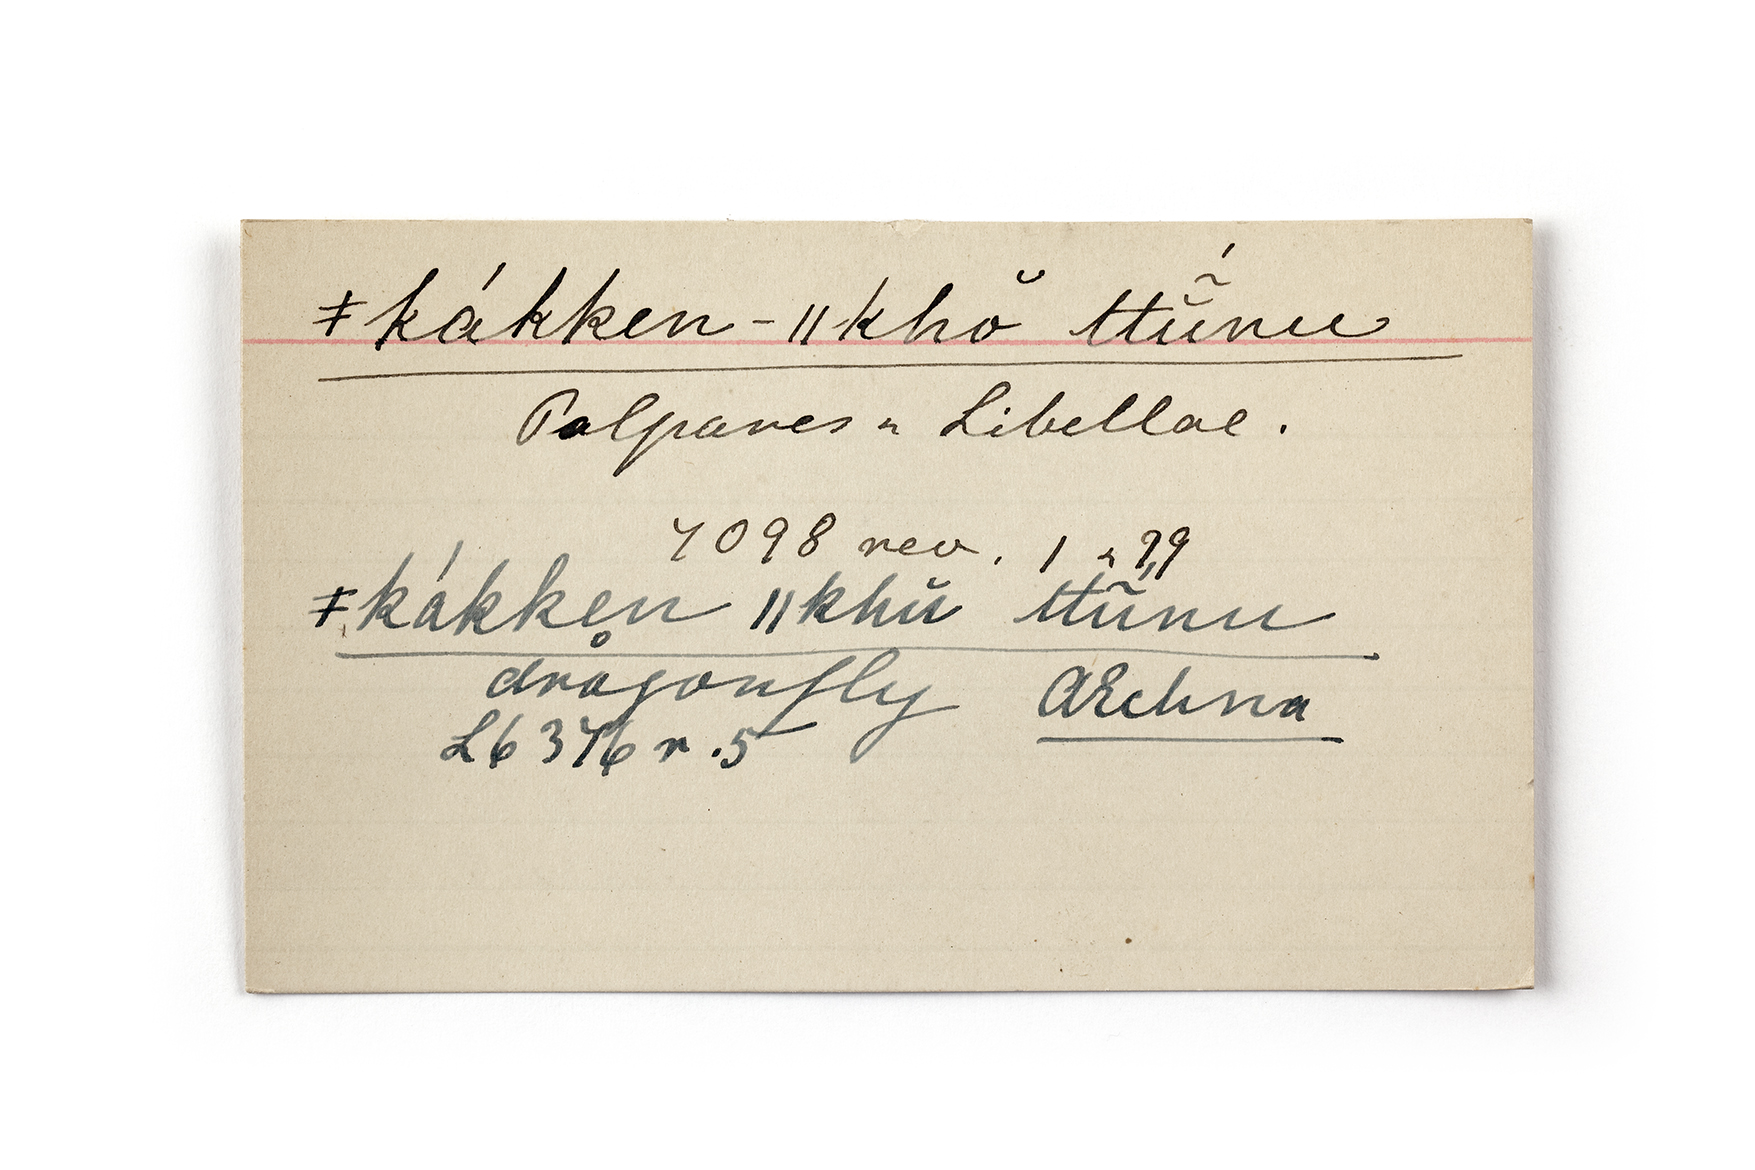 ǂkákken-ǁkhŏ ttŭ̃́nu
Palpares n Libellae.
7098 rev. 1 n 99
ǂkákken ǁkhŭ ttŭ̃́nu
dragonfly AEchna
L6 376 r .5